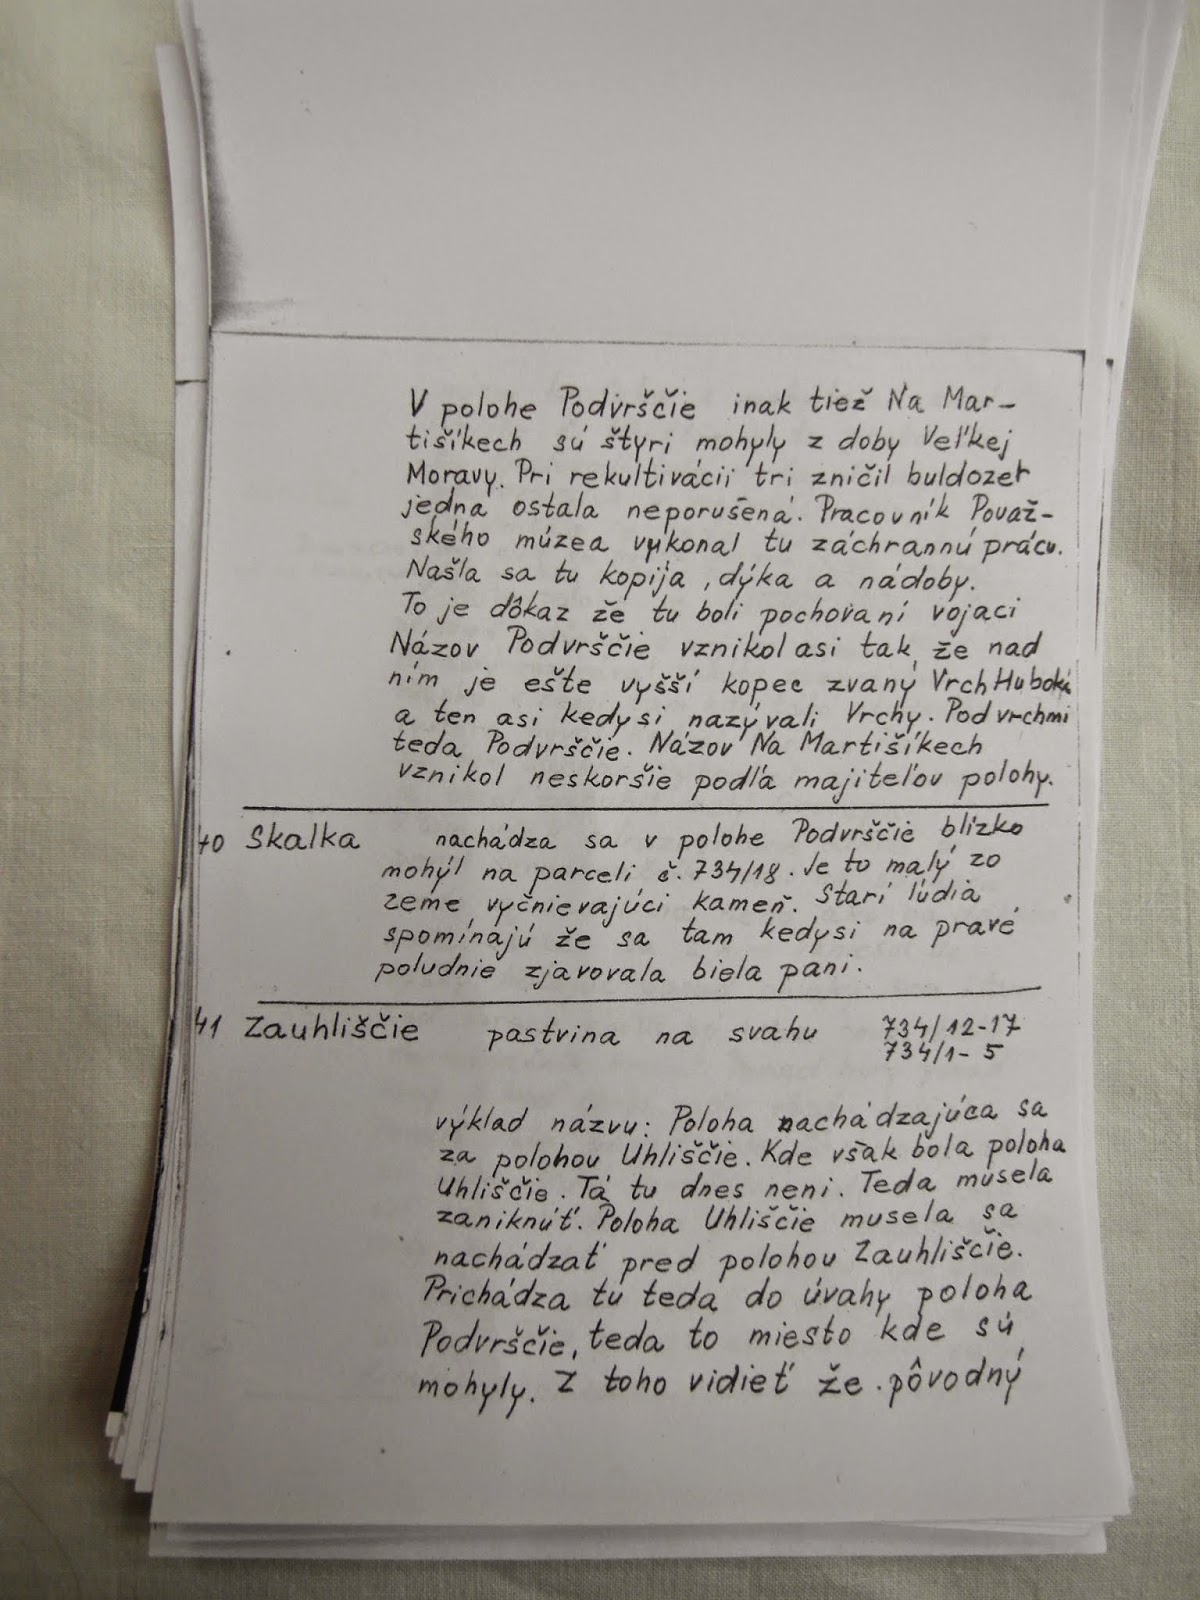 V polohe Podvrščie inak tiež Na Mar-
tišíkech sú štyri mohyly z doby Veľkej
Moravy. Pri rekultivácii tri zničil buldozer
jedna ostala neporušená. Pracovník Považ-
ského múzea vykonal tu záchrannú prácu.
Našla sa tu kopija, dýka a nádoby.
To je dôkaz že tu boli pochovaní vojaci
Názov Podvrščie vznikol asi tak, že nad
ním je ešte vyšší kopec zvaný Vrch Huboki
a ten asi kedysi nazývali Vrchy. Pod vrchmi
teda Podvrščie. Názov Na Martišíkech
vznikol neskoršie podľa majiteľov polohy.
40 Skalka nachádza sa v polohe Podvrščie blízko
mohýl na parceli č. 734/18. Je to malý zo
zeme vyčnievajúci kameň. Starí ľúdia
spomínajú že sa tam kedysi na pravé
poludnie zjavovala biela pani.
41 Zauhliščie pastvina na svahu 734/12-17
734/1-5
výklad názvu: Poloha nachádzajúca sa
za polohou Uhliščie. Kde však bola poloha
Uhliščie. Tá tu dnes neni. Teda musela
zaniknúť. Poloha Uhliščie musela sa
nachádzať pred polohou Zauhliščie.
Prichádza tu teda do úvahy poloha
Podvrščie, teda to miesto kde sú
mohyly. Z toho vidieť že pôvodný